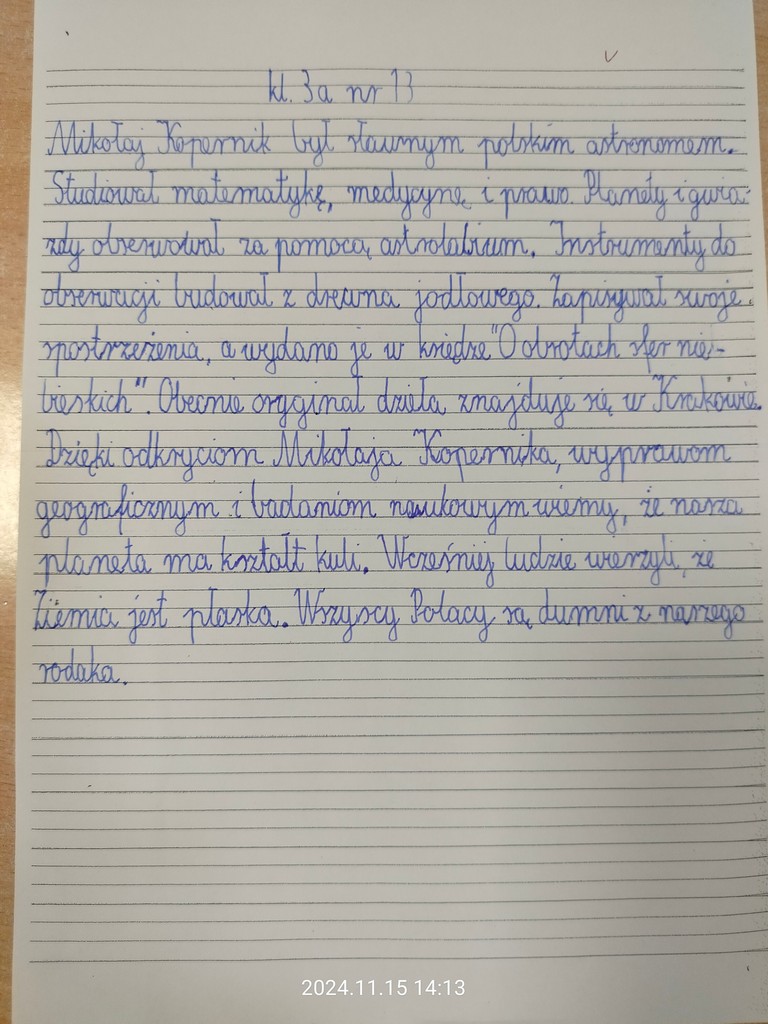 kl. 3a nr 13
Mikołaj Kopernik był sławnym polskim astronomem.
Studiował matematykę, medycynę i prawo. Planety i gwia-
zdy obserwował za pomocą astrolabium. Instrumenty do
obserwacji budował z drewna jodłowego. Zapisywał swoje
spostrzeżenia, a wydano je w księdze "O obrotach sfer nie-
bieskich". Obecnie oryginał dzieła znajduje się w Krakowie.
Dzięki odkryciom Mikołaja Kopernika, wyprawom
geograficznym i badaniom naukowym wiemy, że nasza
planeta ma kształt kuli. Wcześniej ludzie wierzyli, że
Ziemia jest płaska. Wszyscy Polacy są dumni z naszego
rodaka.
2024.11.15 14:13